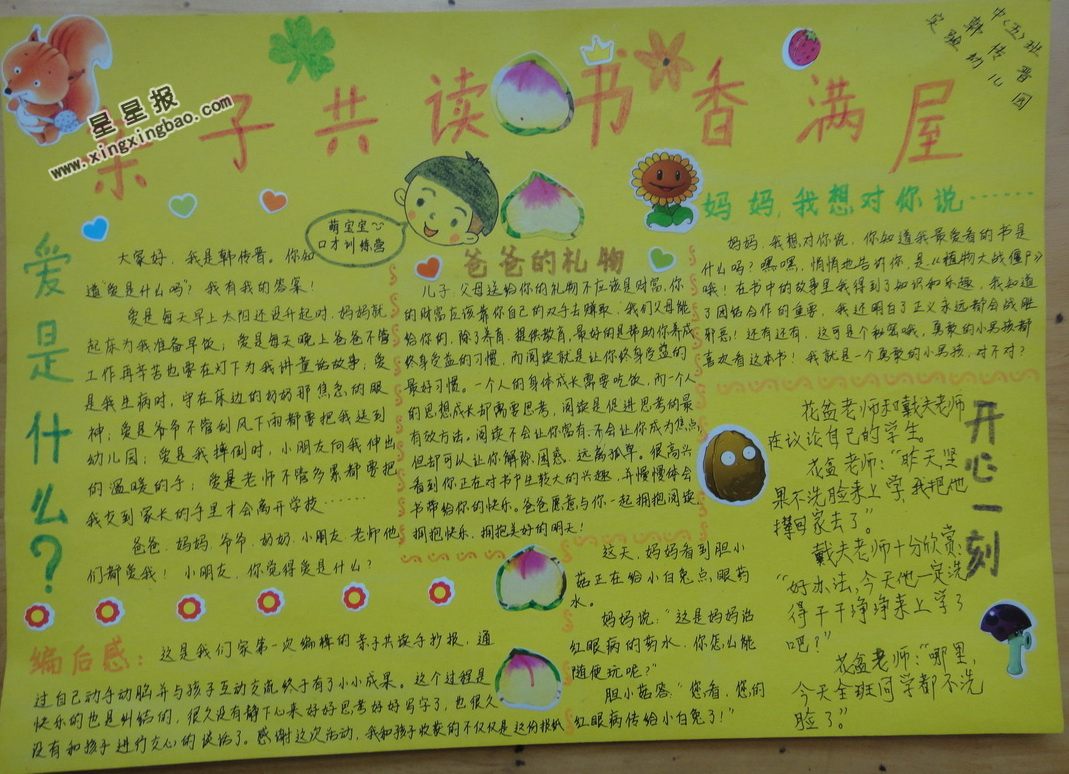 星星报
www.xingxingbao.com
亲子共读 书香满屋
中(五)班
韩传晋
实验幼儿园
爱是什么?
大家好,我是韩传晋。你知
道"爱是什么吗"? 我有我的答案!
爱是每天早上太阳还没升起时,妈妈就
起床为我准备早饭; 爱是每天晚上爸爸不管
工作再辛苦也要在灯下为我讲童话故事; 爱
是我生病时,守在床边的妈妈那焦急的眼
神; 爱是爷爷不管刮风下雨都要把我送到
幼儿园; 爱是我摔倒时,小朋友向我伸出
的温暖的手; 爱是老师不管多累都要把
我交到家长的手里才会离开学校……
爸爸、妈妈、爷爷、奶奶、小朋友、老师他
们都爱我! 小朋友,你觉得爱是什么?
萌宝宝~
口才训练营
爸爸的礼物
儿子,父母送给你的礼物不应该是财富,你
的财富应该靠你自己的双手去赚取,我们父母能
给你的,除了养育、提供教育,最好的是帮助你养成
终身受益的习惯,而阅读就是让你终身受益的
最好习惯。一个人的身体成长需要吃饭,而一个人
的思想成长却需要思考,阅读是促进思考的最
有效方法。阅读不会让你富有,不会让你成为焦点,
但却可以让你解除困惑、远离孤单。很高兴
看到你正在对书中生较大的兴趣,并慢慢体会
书带给你的快乐。爸爸愿意与你一起拥抱阅读、
拥抱快乐、拥抱美好的明天!
妈妈,我想对你说……
妈妈,我想对你说,你知道我最爱看的书是
什么吗? 嘿嘿,悄悄地告诉你,是《植物大战僵尸》
哦! 在书中的故事里我得到了知识和乐趣,我知道
了团结合作的重要,我还明白了正义永远都会战胜
邪恶! 还有还有,这可是个秘密哦,勇敢的小男孩都
喜欢看这本书! 我就是一个勇敢的小男孩,对不对?
开心一刻
花盆老师和戴夫老师
在议论自己的学生。
花盆老师:"昨天坚
果不洗脸来上学,我把他
撵回家去了"。
戴夫老师十分欣赏:
"好办法,今天他一定洗
得干干净净来上学了
吧?"
花盆老师:"哪里,
今天全班同学都不洗
脸了。"
这天,妈妈看到胆小
菇正在给小白兔点眼药
水。
妈妈说:"这是妈妈治
红眼病的药水,你怎么能
随便玩呢?"
胆小菇答:"您看,您的
红眼病传给小白兔了!"
编后感:
这是我们家第一次编辑的亲子共读手抄报,通
过自己动手动脑并与孩子互动交流终于有了小小成果。这个过程是
快乐的也是纠结的,很久没有静下心来好好思考好好写字了,也很久
没有和孩子进行交心的谈话了。感谢这次活动,我和孩子收获的不仅仅是这份报纸